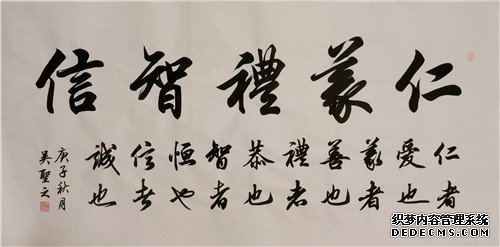 仁義禮智信
仁者
愛也
義者
善也
禮者
恭也
智者
恒也
信者
誠也
庚子秋月
吳聖之
织梦内容管理系统
DEDECMS.COM